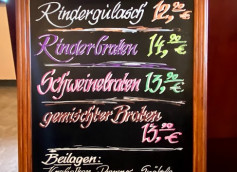 Rindergulasch 12,90 €
Rinderbraten 14,90 €
Schweinebraten 13,90 €
gemischter Braten
13,90 €
Beilagen: